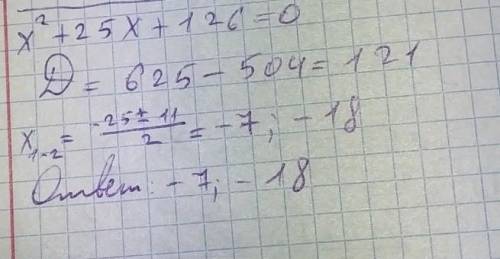 x² + 25x + 126 = 0
D = 625 - 504 = 121
x₁₋₂ = (-25 ± 11)/2 = -7; -18
Ответ: -7; -18